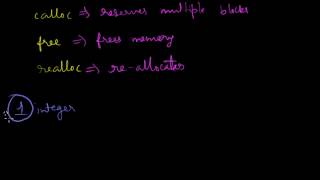 calloc => reserves multiple blocks
free => frees memory
realloc => re-allocates
1 integer